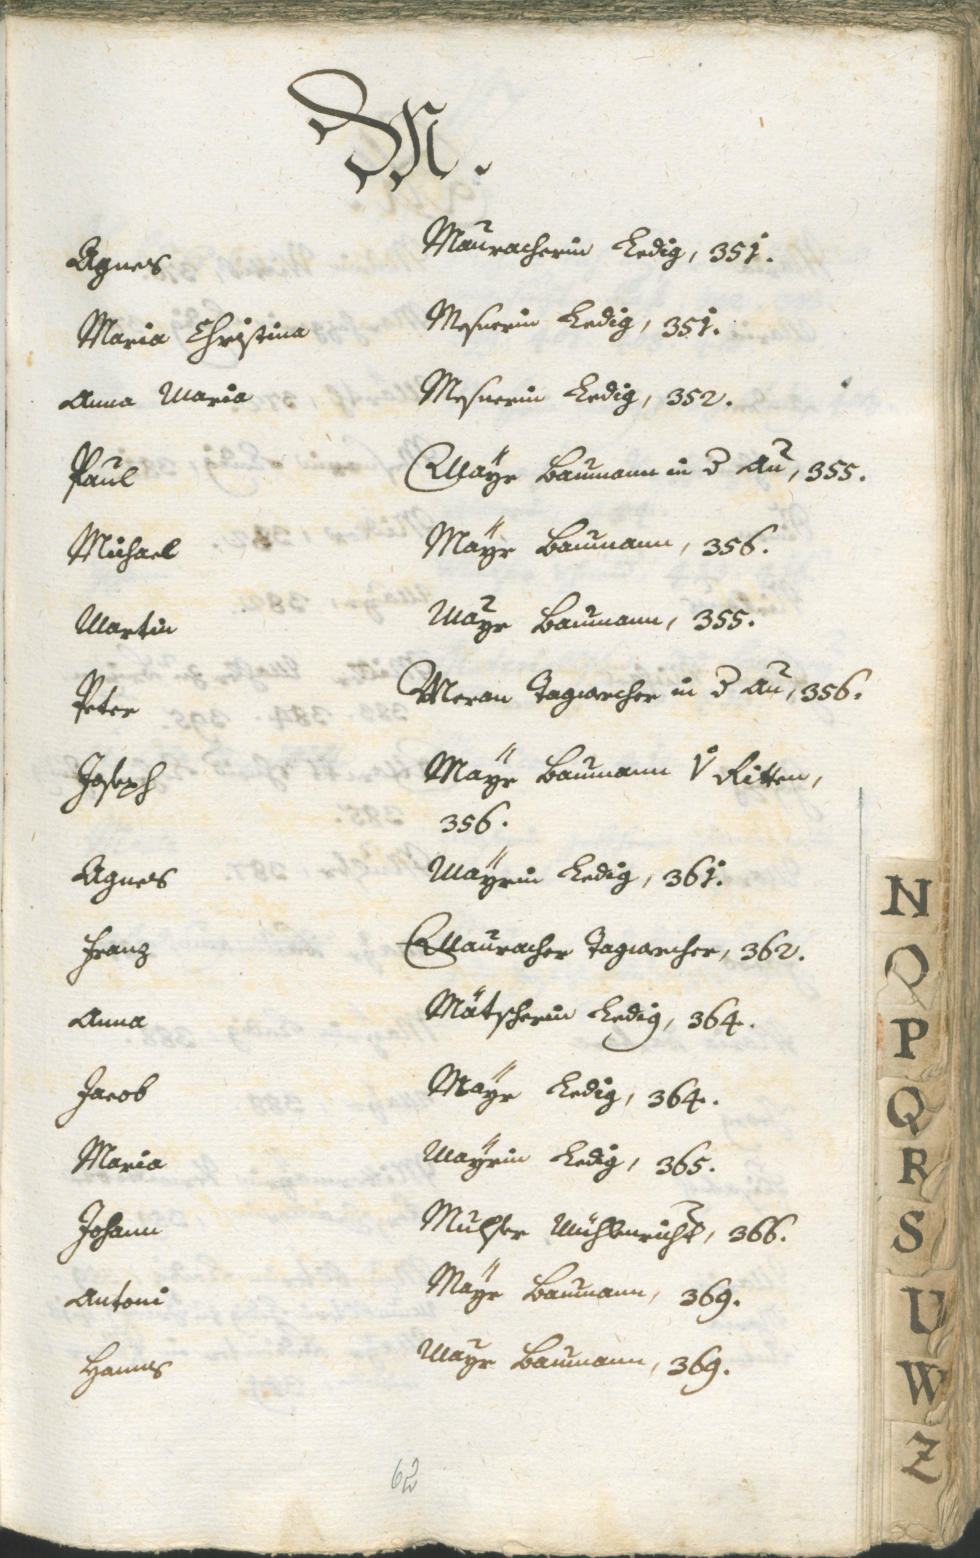 M.
Agnes Mauracherin Ledig, 351.
Maria Christina Messnerin Ledig, 351.
Anna Maria Messnerin Ledig, 352.
Paul Mayr Baumann in d Au, 355.
Michael Maÿr Baumann, 356.
Martin Mayr Baumann, 355.
Peter Meran Tagwercher in d Au, 356.
Joseph Maÿr Baumann V Ritten,
356.
Agnes Maÿrin Ledig, 361.
Franz Mauracher Tagwercher, 362.
Anna Mätscherin Ledig, 364.
Jacob Maÿr Ledig, 364.
Maria Maÿrin Ledig, 365.
Johann Mulser, 366.
Antoni Maÿr Baumann, 369.
Hannes Mayr Baumann, 369.
62
N
O
P
Q
R
S
U
W
Z